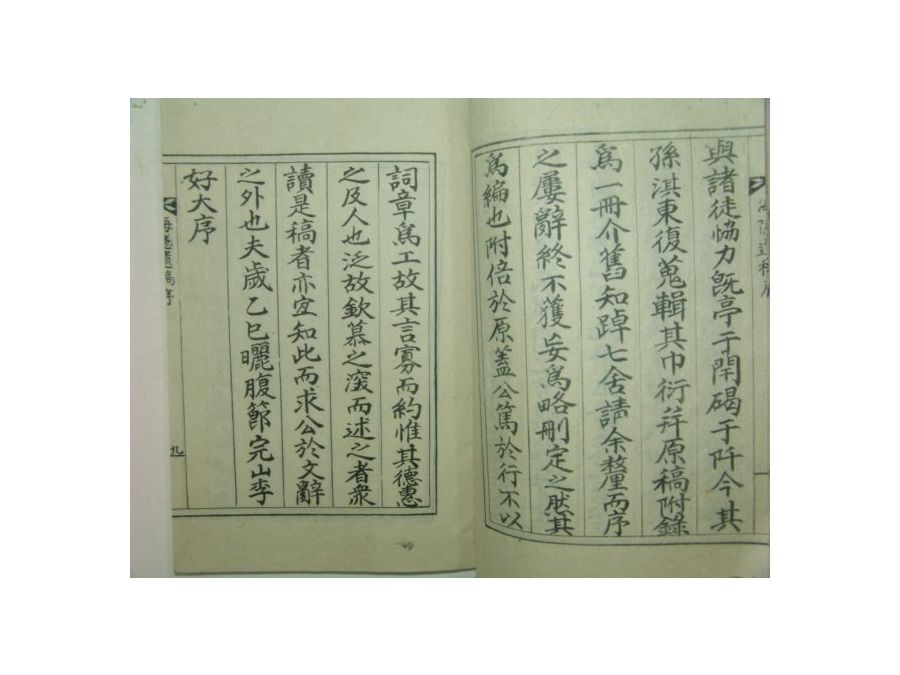 與諸徒恊力旣亭于閈碣于阡今其
孫淇東復蒐輯其巾衍幷原稿附錄
爲一冊介舊知踔七舍請余整而序
之屢辭終不獲妄爲略刪定之然其
爲編也附倍於原盖公篤於行不以
詞章爲工故其言寡而約惟其德惠
之及人也泛故欽慕之深而述之者衆
讀是稿者亦宜知此而求公於文辭
之外也夫歲乙巳曬腹節完山李
好大序
海隱遺稿序
九